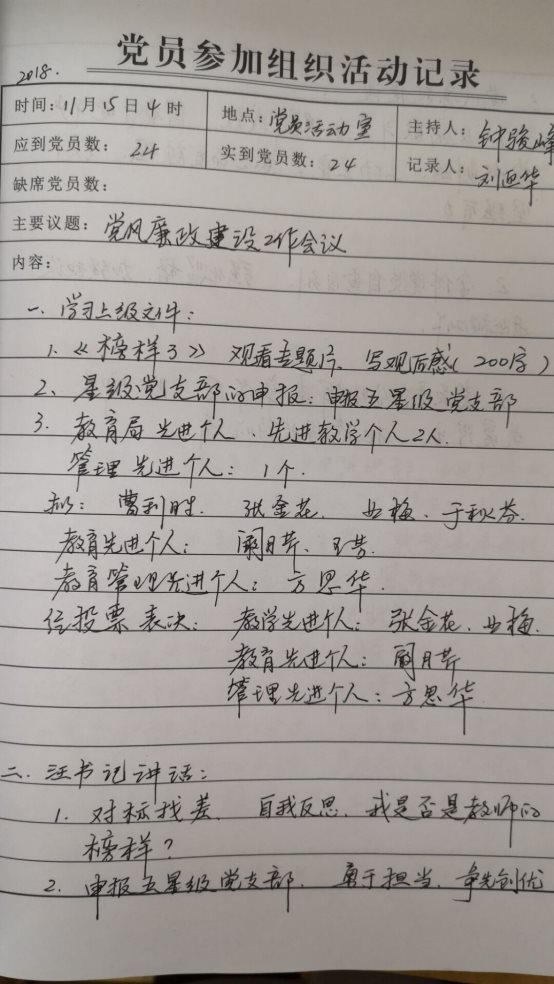 党员参加组织活动记录
2018.
时间:11月15日4时 地点:党员活动室 主持人:钟骏峰
应到党员数:24 实到党员数:24 记录人:刘亚华
缺席党员数:
主要议题:党风廉政建设工作会议
内容:
一.学习上级文件:
1.《榜样3》观看专题片、写观后感(200字)
2、星级党支部的申报:申报五星级党支部
3.教育局先进个人、先进教学个人2人.
管理先进个人:1个.
拟:曹利胜.张金花.梅、于秋芬.
教育先进个人:阚月芹、
教育管理先进个人:方思华.
经投票表决:教学先进个人:张金花、梅.
教育先进个人:阚月芹
管理先进个人:方思华
二.汪书记讲话:
1.对标找差、自我反思、我是否是教师的
榜样?
2.申报五星级党支部.勇于担当、争先创优